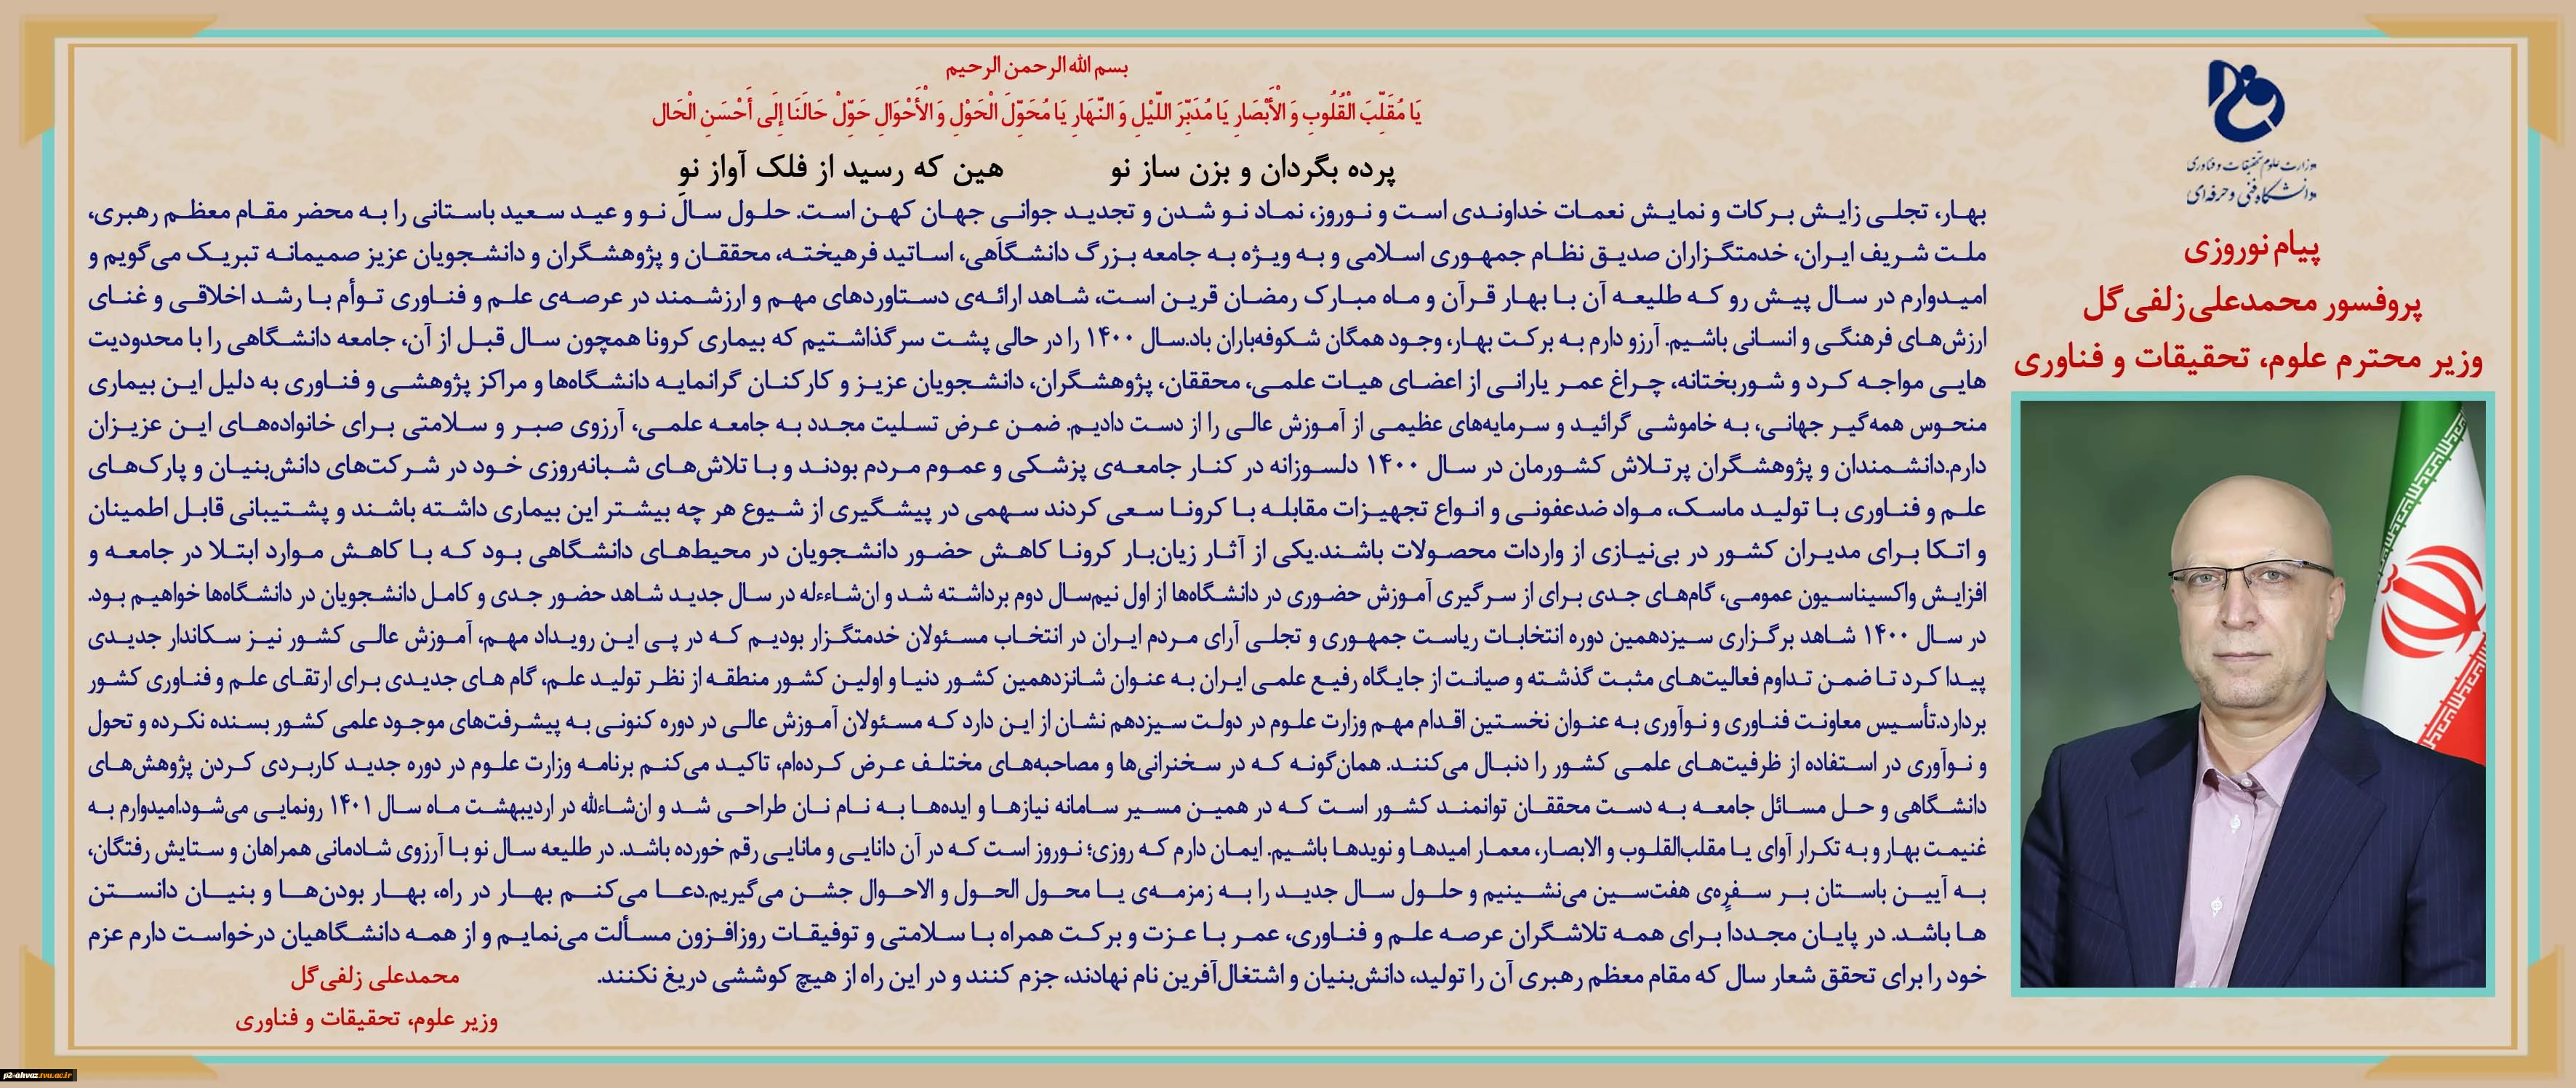 بسم الله الرحمن الرحیم
یَا مُقَلِّبَ الْقُلُوبِ وَ الْأَبْصَارِ یَا مُدَبِّرَ اللَّیْلِ وَ النَّهَارِ یَا مُحَوِّلَ الْحَوْلِ وَ الْأَحْوَالِ حَوِّلْ حَالَنَا إِلَی أَحْسَنِ الْحَال
پرده بگردان و بزن ساز نو هین که رسید از فلک آواز نو
بهار، تجلی زایش برکات و نمایش نعمات خداوندی است و نوروز، نماد نو شدن و تجدید جوانی جهان کهن است. حلول سال نو و عید سعید باستانی را به محضر مقام معظم رهبری،
ملت شریف ایران، خدمتگزاران صدیق نظام جمهوری اسلامی و به ویژه به جامعه بزرگ دانشگاهی، اساتید فرهیخته، محققان و پژوهشگران و دانشجویان عزیز صمیمانه تبریک می‌گویم و
امیدوارم در سال پیش رو که طلیعه آن با بهار قرآن و ماه مبارک رمضان قرین است، شاهد ارائه‌ی دستاوردهای مهم و ارزشمند در عرصه‌ی علم و فناوری توأم با رشد اخلاقی و غنای
ارزش‌های فرهنگی و انسانی باشیم. آرزو دارم به برکت بهار، وجود همگان شکوفه‌باران باد.سال ۱۴۰۰ را در حالی پشت سر گذاشتیم که بیماری کرونا همچون سال قبل از آن، جامعه دانشگاهی را با محدودیت
هایی مواجه کرد و شوربختانه، چراغ عمر یارانی از اعضای هیات علمی، محققان، پژوهشگران، دانشجویان عزیز و کارکنان گرانمایه دانشگاه‌ها و مراکز پژوهشی و فناوری به دلیل این بیماری
منحوس همه‌گیر جهانی، به خاموشی گرائید و سرمایه‌های عظیمی از آموزش عالی را از دست دادیم. ضمن عرض تسلیت مجدد به جامعه علمی، آرزوی صبر و سلامتی برای خانواده‌های این عزیزان
دارم.دانشمندان و پژوهشگران پرتلاش کشورمان در سال ۱۴۰۰ دلسوزانه در کنار جامعه‌ی پزشکی و عموم مردم بودند و با تلاش‌های شبانه‌روزی خود در شرکت‌های دانش‌بنیان و پارک‌های
علم و فناوری با تولید ماسک، مواد ضدعفونی و انواع تجهیزات مقابله با کرونا سعی کردند سهمی در پیشگیری از شیوع هر چه بیشتر این بیماری داشته باشند و پشتیبانی قابل اطمینان
و اتکا برای مدیران کشور در بی‌نیازی از واردات محصولات باشند.یکی از آثار زیان‌بار کرونا کاهش حضور دانشجویان در محیط‌های دانشگاهی بود که با کاهش موارد ابتلا در جامعه و
افزایش واکسیناسیون عمومی، گام‌های جدی برای از سرگیری آموزش حضوری در دانشگاه‌ها از اول نیم‌سال دوم برداشته شد و ان‌شاءءله در سال جدید شاهد حضور جدی و کامل دانشجویان در دانشگاه‌ها خواهیم بود.
در سال ۱۴۰۰ شاهد برگزاری سیزدهمین دوره انتخابات ریاست جمهوری و تجلی آرای مردم ایران در انتخاب مسئولان خدمتگزار بودیم که در پی این رویداد مهم، آموزش عالی کشور نیز سکاندار جدیدی
پیدا کرد تا ضمن تداوم فعالیت‌های مثبت گذشته و صیانت از جایگاه رفیع علمی ایران به عنوان شانزدهمین کشور دنیا و اولین کشور منطقه از نظر تولید علم، گام های جدیدی برای ارتقای علم و فناوری کشور
بردارد.تأسیس معاونت فناوری و نوآوری به عنوان نخستین اقدام مهم وزارت علوم در دولت سیزدهم نشان از این دارد که مسئولان آموزش عالی در دوره کنونی به پیشرفت‌های موجود علمی کشور بسنده نکرده و تحول
و نوآوری در استفاده از ظرفیت‌های علمی کشور را دنبال می‌کنند. همان‌گونه که در سخنرانی‌ها و مصاحبه‌های مختلف عرض کرده‌ام، تاکید می‌کنم برنامه وزارت علوم در دوره جدید کاربردی کردن پژوهش‌های
دانشگاهی و حل مسائل جامعه به دست محققان توانمند کشور است که در همین مسیر سامانه نیازها و ایده‌ها به نام نان طراحی شد و ان‌شاءلله در اردیبهشت ماه سال ۱۴۰۱ رونمایی می‌شود.امیدوارم به
غنیمت بهار و به تکرار آوای یا مقلب‌القلوب و الابصار، معمار امیدها و نویدها باشیم. ایمان دارم که روزی؛ نوروز است که در آن دانایی و مانایی رقم خورده باشد. در طلیعه سال نو با آرزوی شادمانی همراهان و ستایش رفتگان،
به آیین باستان بر سفره‌ی هفت‌سین می‌نشینیم و حلول سال جدید را به زمزمه‌ی یا محول الحول و الاحوال جشن می‌گیریم.دعا می‌کنم بهار در راه، بهار بودن‌ها و بنیان دانستن
ها باشد. در پایان مجددا برای همه تلاشگران عرصه علم و فناوری، عمر با عزت و برکت همراه با سلامتی و توفیقات روزافزون مسألت می‌نمایم و از همه دانشگاهیان درخواست دارم عزم
خود را برای تحقق شعار سال که مقام معظم رهبری آن را تولید، دانش‌بنیان و اشتغال‌آفرین نام نهادند، جزم کنند و در این راه از هیچ کوششی دریغ نکنند.
محمدعلی زلفی‌گل
وزیر علوم، تحقیقات و فناوری
وزارت علوم تحقیقات و فناوری
دانشگاه فنی و حرفه‌ای
پیام نوروزی
پروفسور محمدعلی زلفی‌گل
وزیر محترم علوم، تحقیقات و فناوری
p2-ahvaz.tvu.ac.ir